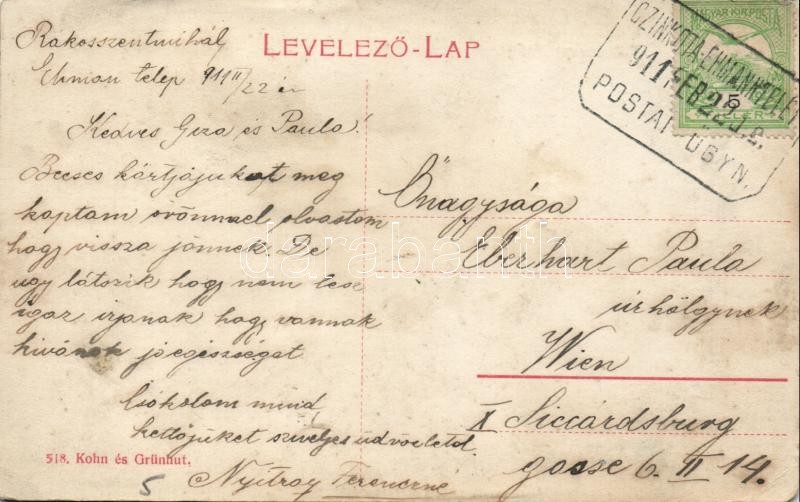 Rakosszentmihály
Ehman telep 911 II/22 én
Kedves Geza és Paula!
Becses kártjájukat meg
kaptam örömmel olvastam
hogy vissza jönnek. De
ugy látszik hogy nem lesz
igaz irjanak hogy vannak
kivánok jóegésséget
Csokolom mind
kettőjüket szivéljes üdvözlettel
Nyitray Ferencné
LEVELEZŐ-LAP
MAGYAR KIR. POSTA
CZINKOTA-EHMANNTELEP
911 FEB 22
POSTAI ÜGYN.
Őnagysága
Eberhart Paula
úrhölgynek
Wien
X Siccardsburg
gasse 6. II 14.
518. Kohn és Grünhut.
5
darabanth